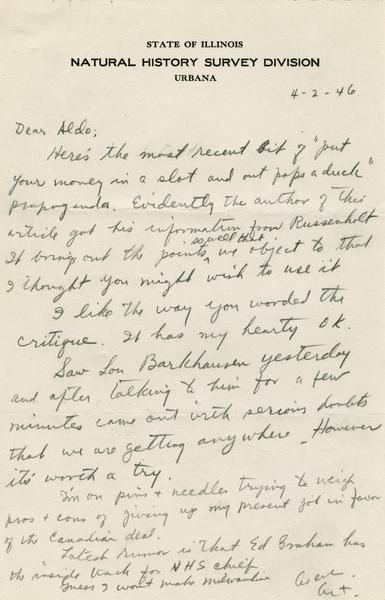 STATE OF ILLINOIS
NATURAL HISTORY SURVEY DIVISION
URBANA
4-2-46
Dear Aldo;
Here's the most recent bit of "put
your money in a slot and out pops a duck"
propoganda. Evidently the author of this
article got his information from Russenholt
It brings out the points so well that we object to that
I thought you might wish to use it
I like the way you worded the
critique. It has my hearty OK.
Saw Lou Barkhausen yesterday
and after talking to him for a few
minutes came out with serious doubts
that we are getting anywhere. However
it's worth a try.
I'm on pins & needles trying to weigh
pros & cons of giving up my present job in favor
of the Canadian deal.
Latest rumor is that Ed Graham has
the inside track for NHS chief.
Guess I won't make Milwaukee
Art.